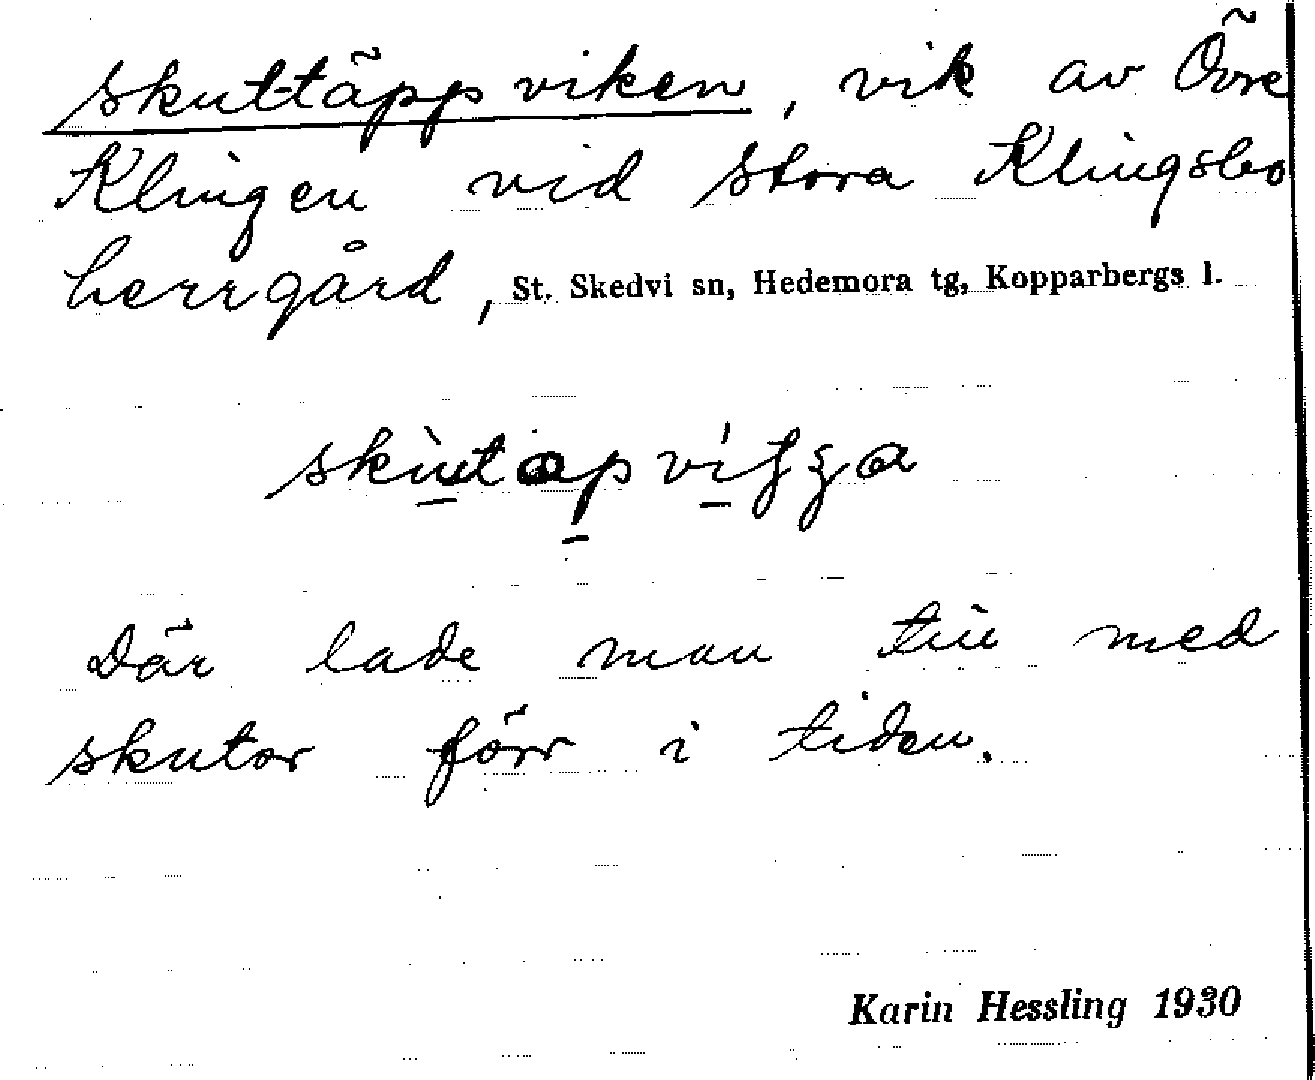 Skuttäppviken, vik av Övre
Klingen vid Stora Klingsbo
herrgård, St. Skedvi sn, Hedemora tg, Kopparbergs l.
Där lade man till med
skutor förr i tiden.
Karin Hessling 1930